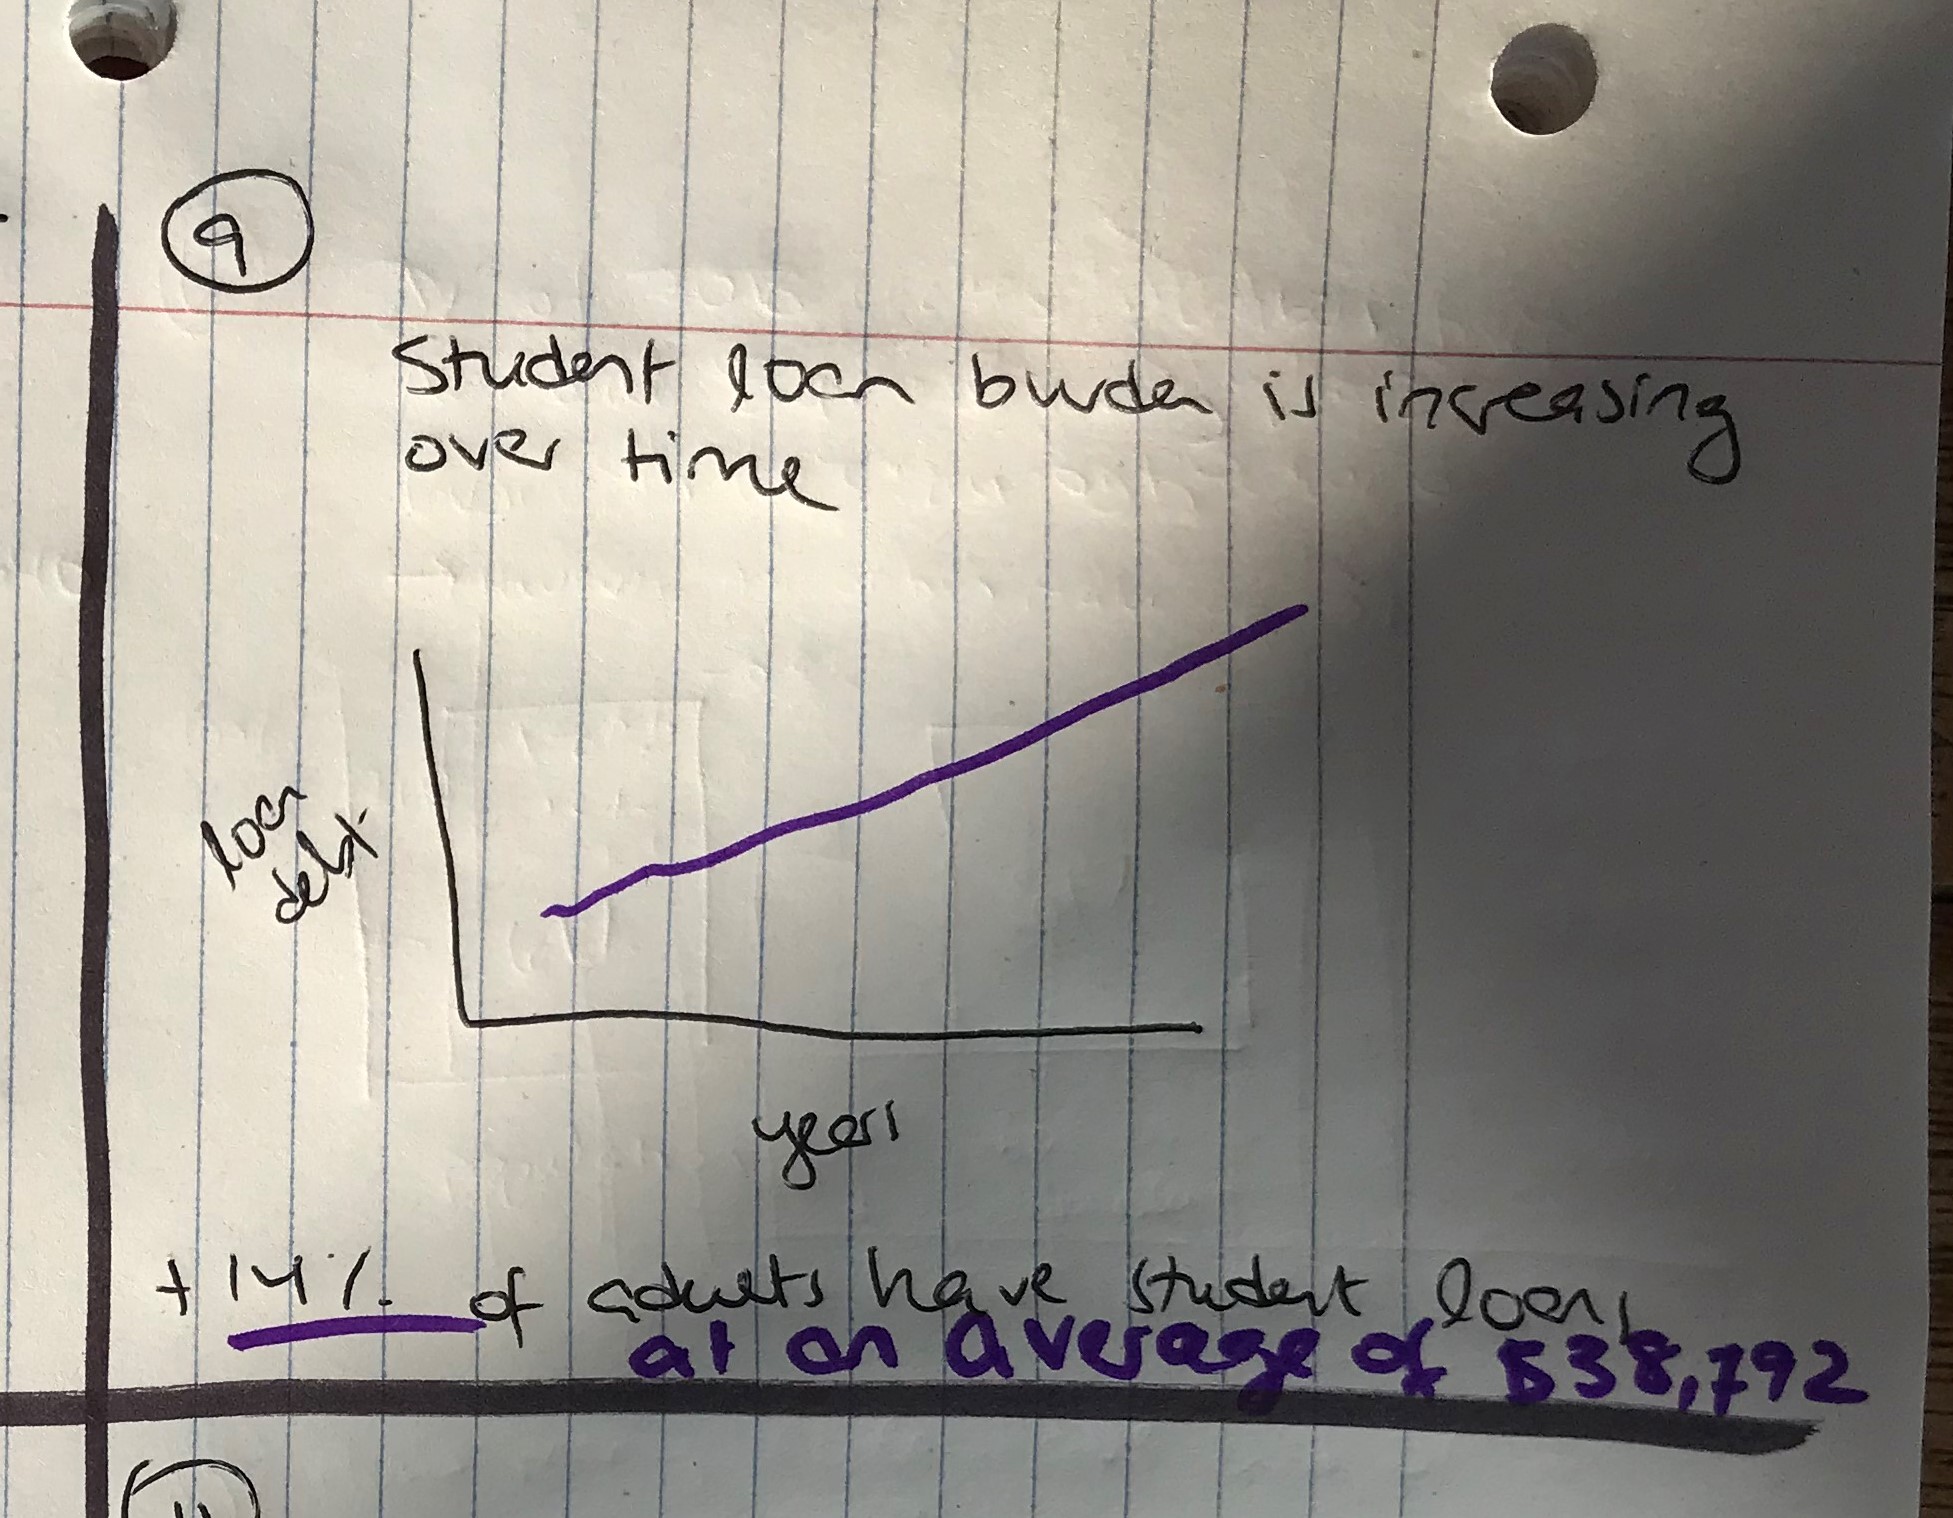 9
Student loan burden is increasing
over time
loan
debt
years
+ 14% of adults have student loans
at an average of $38,792